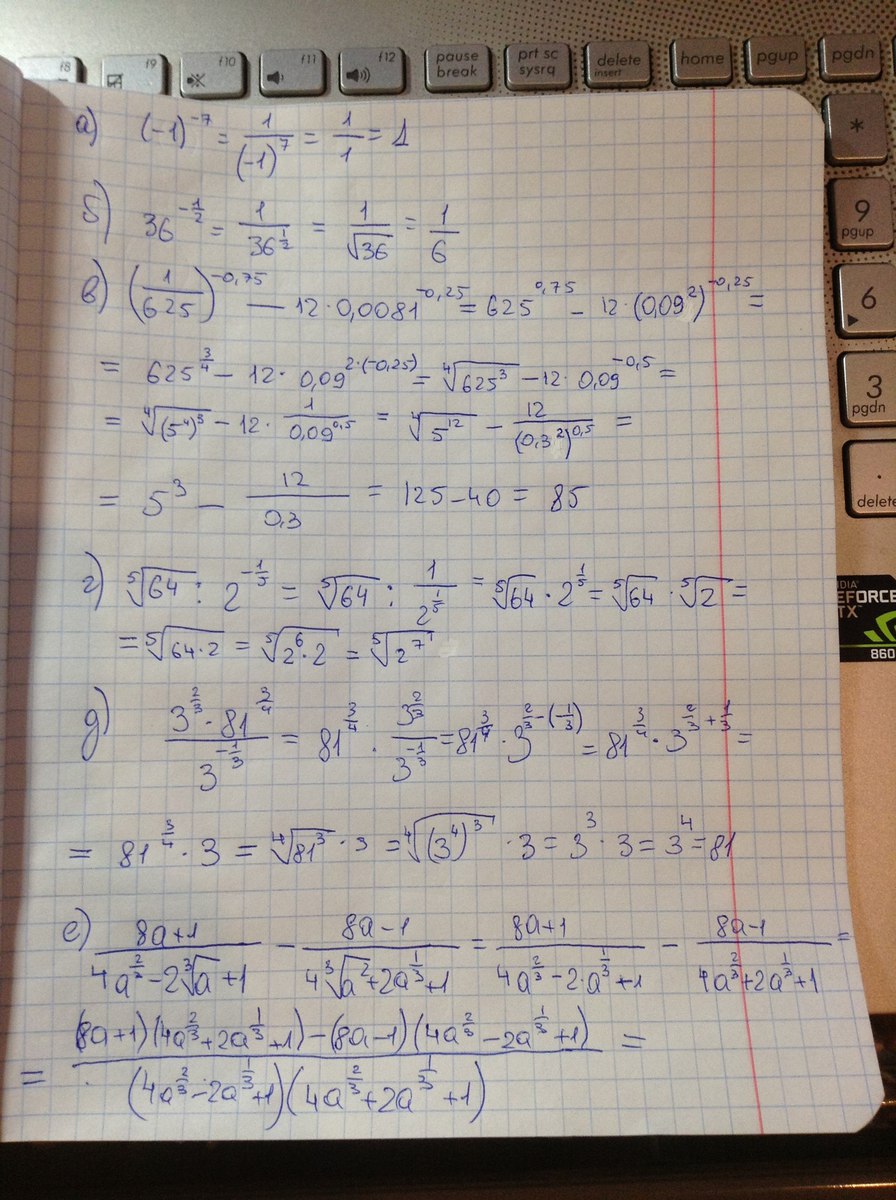 f8 f9 f10 f11 f12 pause break prt sc sysrq delete insert home pgup pgdn
*
9 pgup
6
3 pgdn
. delete
EFORCE
TX
860
а) (-1)^{-7} = \frac{1}{(-1)^7} = \frac{1}{1} = 1
б) 36^{-\frac{1}{2}} = \frac{1}{36^{\frac{1}{2}}} = \frac{1}{\sqrt{36}} = \frac{1}{6}
в) (\frac{1}{625})^{-0,75} — 12 · 0,0081^{-0,25} = 625^{0,75} - 12 · (0,09^2)^{-0,25} =
= 625^{\frac{3}{4}} - 12 · 0,09^{2·(-0,25)} = \sqrt[4]{625^3} - 12 · 0,09^{-0,5} =
= \sqrt[4]{(5^4)^3} - 12 · \frac{1}{0,09^{0,5}} = \sqrt[4]{5^{12}} - \frac{12}{(0,3^2)^{0,5}} =
= 5^3 - \frac{12}{0,3} = 125 - 40 = 85
г) \sqrt[5]{64} : 2^{-\frac{1}{5}} = \sqrt[5]{64} : \frac{1}{2^{\frac{1}{5}}} = \sqrt[5]{64} · 2^{\frac{1}{5}} = \sqrt[5]{64} · \sqrt[5]{2} =
= \sqrt[5]{64·2} = \sqrt[5]{2^6·2} = \sqrt[5]{2^7}
д) \frac{3^{\frac{2}{3}} · 81^{\frac{3}{4}}}{3^{-\frac{1}{3}}} = 81^{\frac{3}{4}} · \frac{3^{\frac{2}{3}}}{3^{-\frac{1}{3}}} = 81^{\frac{3}{4}} · 3^{\frac{2}{3}-(-\frac{1}{3})} = 81^{\frac{3}{4}} · 3^{\frac{2}{3}+\frac{1}{3}} =
= 81^{\frac{3}{4}} · 3 = \sqrt[4]{81^3} · 3 = \sqrt[4]{(3^4)^3} · 3 = 3^3 · 3 = 3^4 = 81
е) \frac{8a+1}{4a^{\frac{2}{3}} - 2\sqrt[3]{a} + 1} - \frac{8a-1}{4\sqrt[3]{a^2} + 2a^{\frac{1}{3}} + 1} = \frac{8a+1}{4a^{\frac{2}{3}} - 2·a^{\frac{1}{3}} + 1} - \frac{8a-1}{4a^{\frac{2}{3}} + 2a^{\frac{1}{3}} + 1} =
= \frac{(8a+1)(4a^{\frac{2}{3}} + 2a^{\frac{1}{3}} + 1) - (8a-1)(4a^{\frac{2}{3}} - 2a^{\frac{1}{3}} + 1)}{(4a^{\frac{2}{3}} - 2a^{\frac{1}{3}} + 1)(4a^{\frac{2}{3}} + 2a^{\frac{1}{3}} + 1)} =